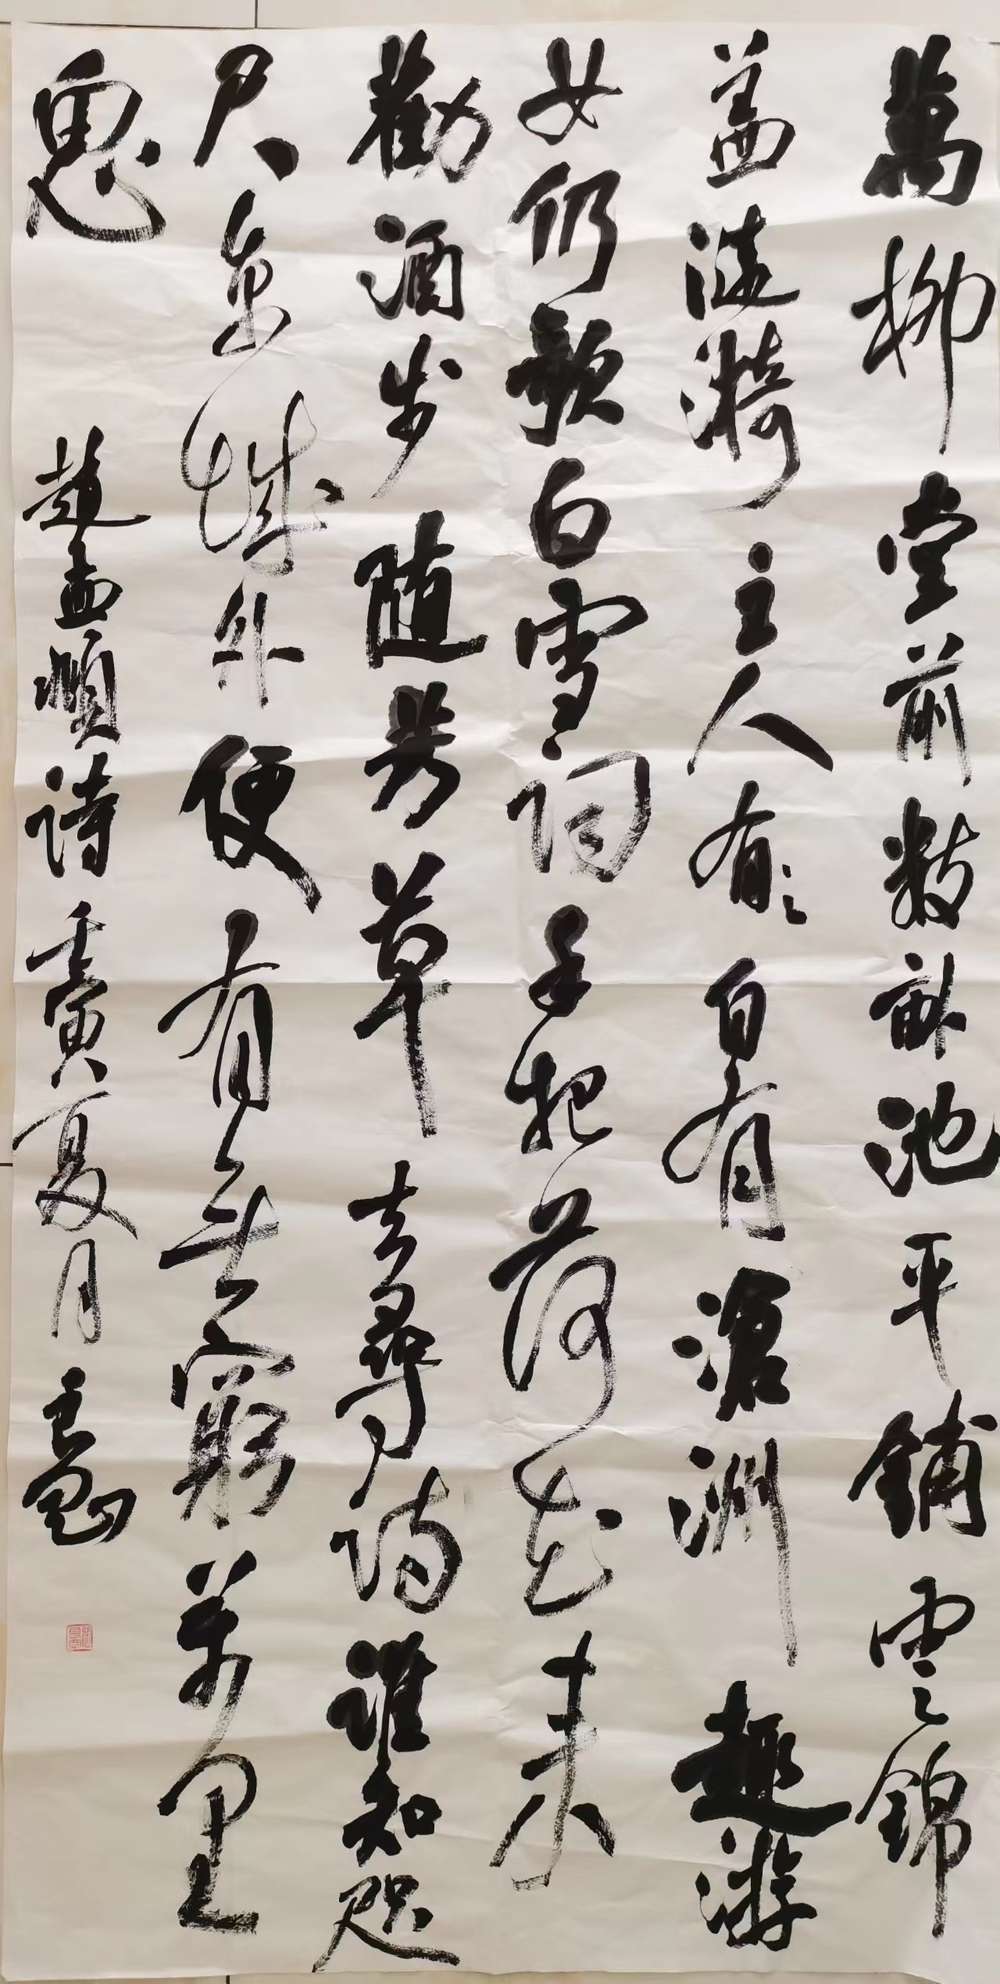 萬柳堂前數畝池平鋪雲錦
盖漣漪主人有〻自有滄洲趣游
女仍歌白雪詞手把荷花来
勸酒步隨芳草去尋詩誰知咫
尺京城外便有無窮萬里
思
趙孟頫詩壬寅夏月